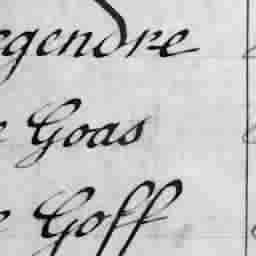 egendre
e Goas
e Goff